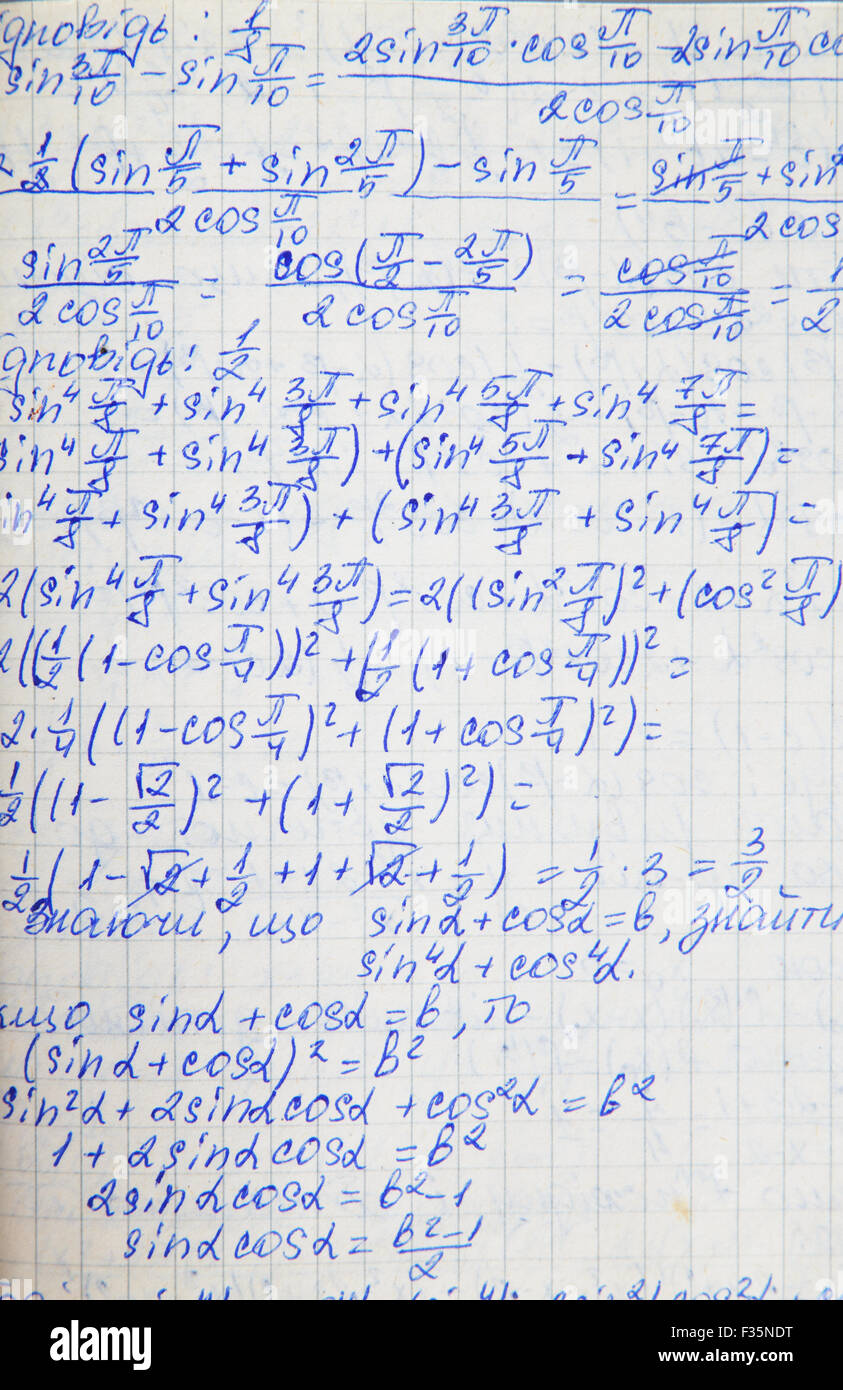 ідповідь: 1/8
sin 3π/10 − sin π/10 = (2sin 3π/10 · cos π/10 − 2sin π/10 co
2cos π/10
2·1/2 (sin π/5 + sin 2π/5) − sin π/5 = sin π/5 + sin
2cos π/10 2cos
sin 2π/5 / 2cos π/10 = cos(π/2 − 2π/5) / 2cos π/10 = cos π/10 / 2cos π/10 = 1/2
ідповідь: 1/2
sin⁴ π/8 + sin⁴ 3π/8 + sin⁴ 5π/8 + sin⁴ 7π/8 =
sin⁴ π/8 + sin⁴ 3π/8) + (sin⁴ 5π/8 + sin⁴ 7π/8) =
in⁴ π/8 + sin⁴ 3π/8) + (sin⁴ 3π/8 + sin⁴ π/8) =
2(sin⁴ π/8 + sin⁴ 3π/8) = 2((sin² π/8)² + (cos² π/8)
2((1/2(1 − cos π/4))² + (1/2(1 + cos π/4))² =
2·1/4((1 − cos π/4)² + (1 + cos π/4)²) =
1/2((1 − √2/2)² + (1 + √2/2)²) =
1/2(1 − √2 + 1/2 + 1 + √2 + 1/2) = 1/2 · 3 = 3/2
Знаючи, що sinα + cosα = b, знайти
sin⁴α + cos⁴α.
кщо sinα + cosα = b, то
(sinα + cosα)² = b²
sin²α + 2sinαcosα + cos²α = b²
1 + 2sinαcosα = b²
2sinαcosα = b² − 1
sinαcosα = (b² − 1)/2
alamy
F35NDT
www.alamy.com